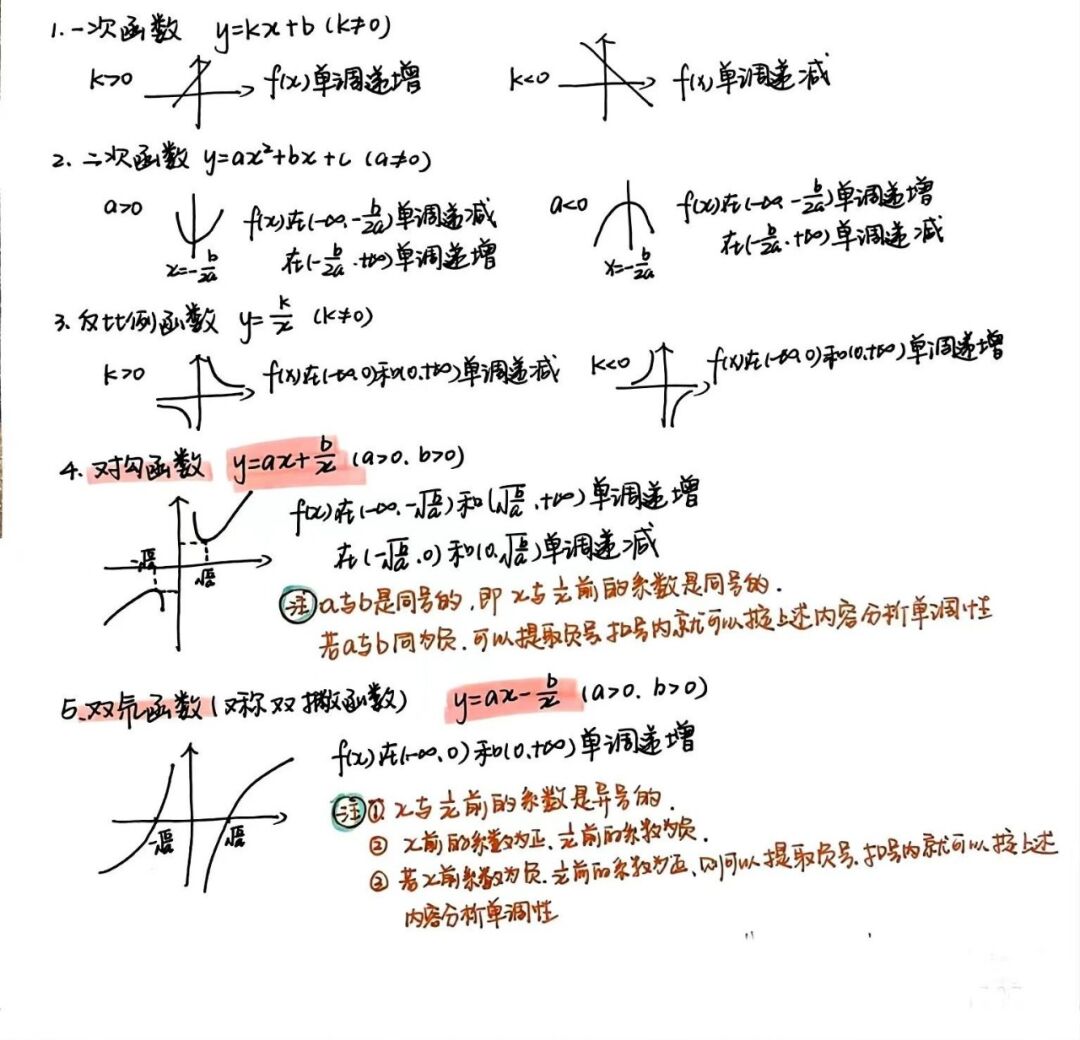 1.一次函数 y=kx+b (k≠0)
k>0 f(x)单调递增 k<0 f(x)单调递减
2.二次函数 y=ax²+bx+c (a≠0)
a>0 f(x)在(-∞,-b/2a)单调递减 a<0 f(x)在(-∞,-b/2a)单调递增
x=-b/2a 在(-b/2a,+∞)单调递增 x=-b/2a 在(-b/2a,+∞)单调递减
3.反比例函数 y=k/x (k≠0)
k>0 f(x)在(-∞,0)和(0,+∞)单调递减 k<0 f(x)在(-∞,0)和(0,+∞)单调递增
4.对勾函数 y=ax+b/x (a>0,b>0)
f(x)在(-∞,-√(b/a))和(√(b/a),+∞)单调递增
-√(b/a) √(b/a) 在(-√(b/a),0)和(0,√(b/a))单调递减
注 a与b是同号的,即x与1/x前的系数是同号的.
若a与b同为负,可以提取负号,括号内就可以按上述内容分析单调性
5.双刍函数(又称双撇函数) y=ax-b/x (a>0,b>0)
f(x)在(-∞,0)和(0,+∞)单调递增
-√(b/a) √(b/a)
注 ① x与1/x前的系数是异号的.
② x前的系数为正,1/x前的系数为负.
③ 若x前系数为负,1/x前的系数为正,则可以提取负号,括号内就可以按上述
内容分析单调性